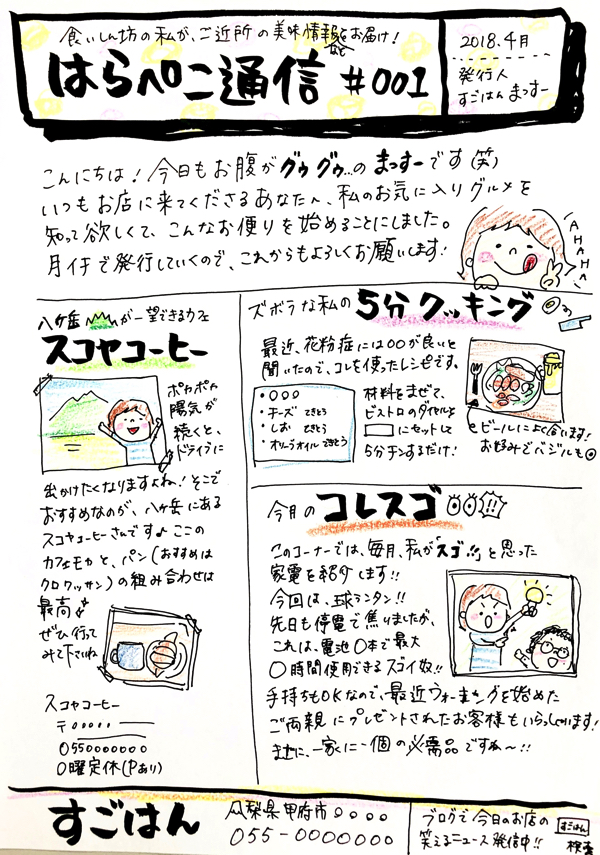 食いしん坊の私が、ご近所の美味情報をお届け!
はらペこ通信 #001
2018.4月
発行人
すごはん まっすー
こんにちは!今日もお腹がグゥグゥ…のまっすーです(笑)
いつもお店に来てくださるあなたへ、私のお気に入りグルメを
知って欲しくて、こんなお便りを始めることにしました。
月イチで発行していくので、これからもよろしくお願いします!
AHAHA
八ヶ岳が一望できるカフェ
スコヤコーヒー
ポカポカ
陽気が
続くと、
ドライブに
出かけたくなりますよね!そこで
おすすめなのが、八ヶ岳にある
スコヤコーヒーさんです♪ここの
カフェモカと、パン(おすすめは
クロワッサン)の組み合わせは
最高
ぜひ行って
みて下さいね
スコヤコーヒー
〒○○○○○
0550000000
○曜定休(Pあり)
ズボラな私の 5分クッキング
最近、花粉症には○○が良いと
聞いたので、コレを使ったレシピです。
・○○○
・チーズ てきとう
・しお てきとう
・オリーブオイル てきとう
材料をまぜて、
ビストロのダイヤルを
にセットして
5分チンするだけ!
ビールによく合います!
お好みでバジルも◎
今月の コレスゴ○○!!
このコーナーでは、毎月、私が「スゴ!!」と思った
家電を紹介します!!
今回は、球ランタン!!
先日も停電で焦りましたが、
これは、電池○本で最大
○時間使用できるスゴイ奴!!
手持ちもOKなので、最近ウォーキングを始めた
ご両親にプレゼントされたお客様もいらっしゃいます!
まさに、一家に一個の必需品ですね〜!!
すごはん
山梨県甲府市○○○○
055-0000000
ブログで今日のお店の
笑えるニュース発信中!!
すごはん
検索